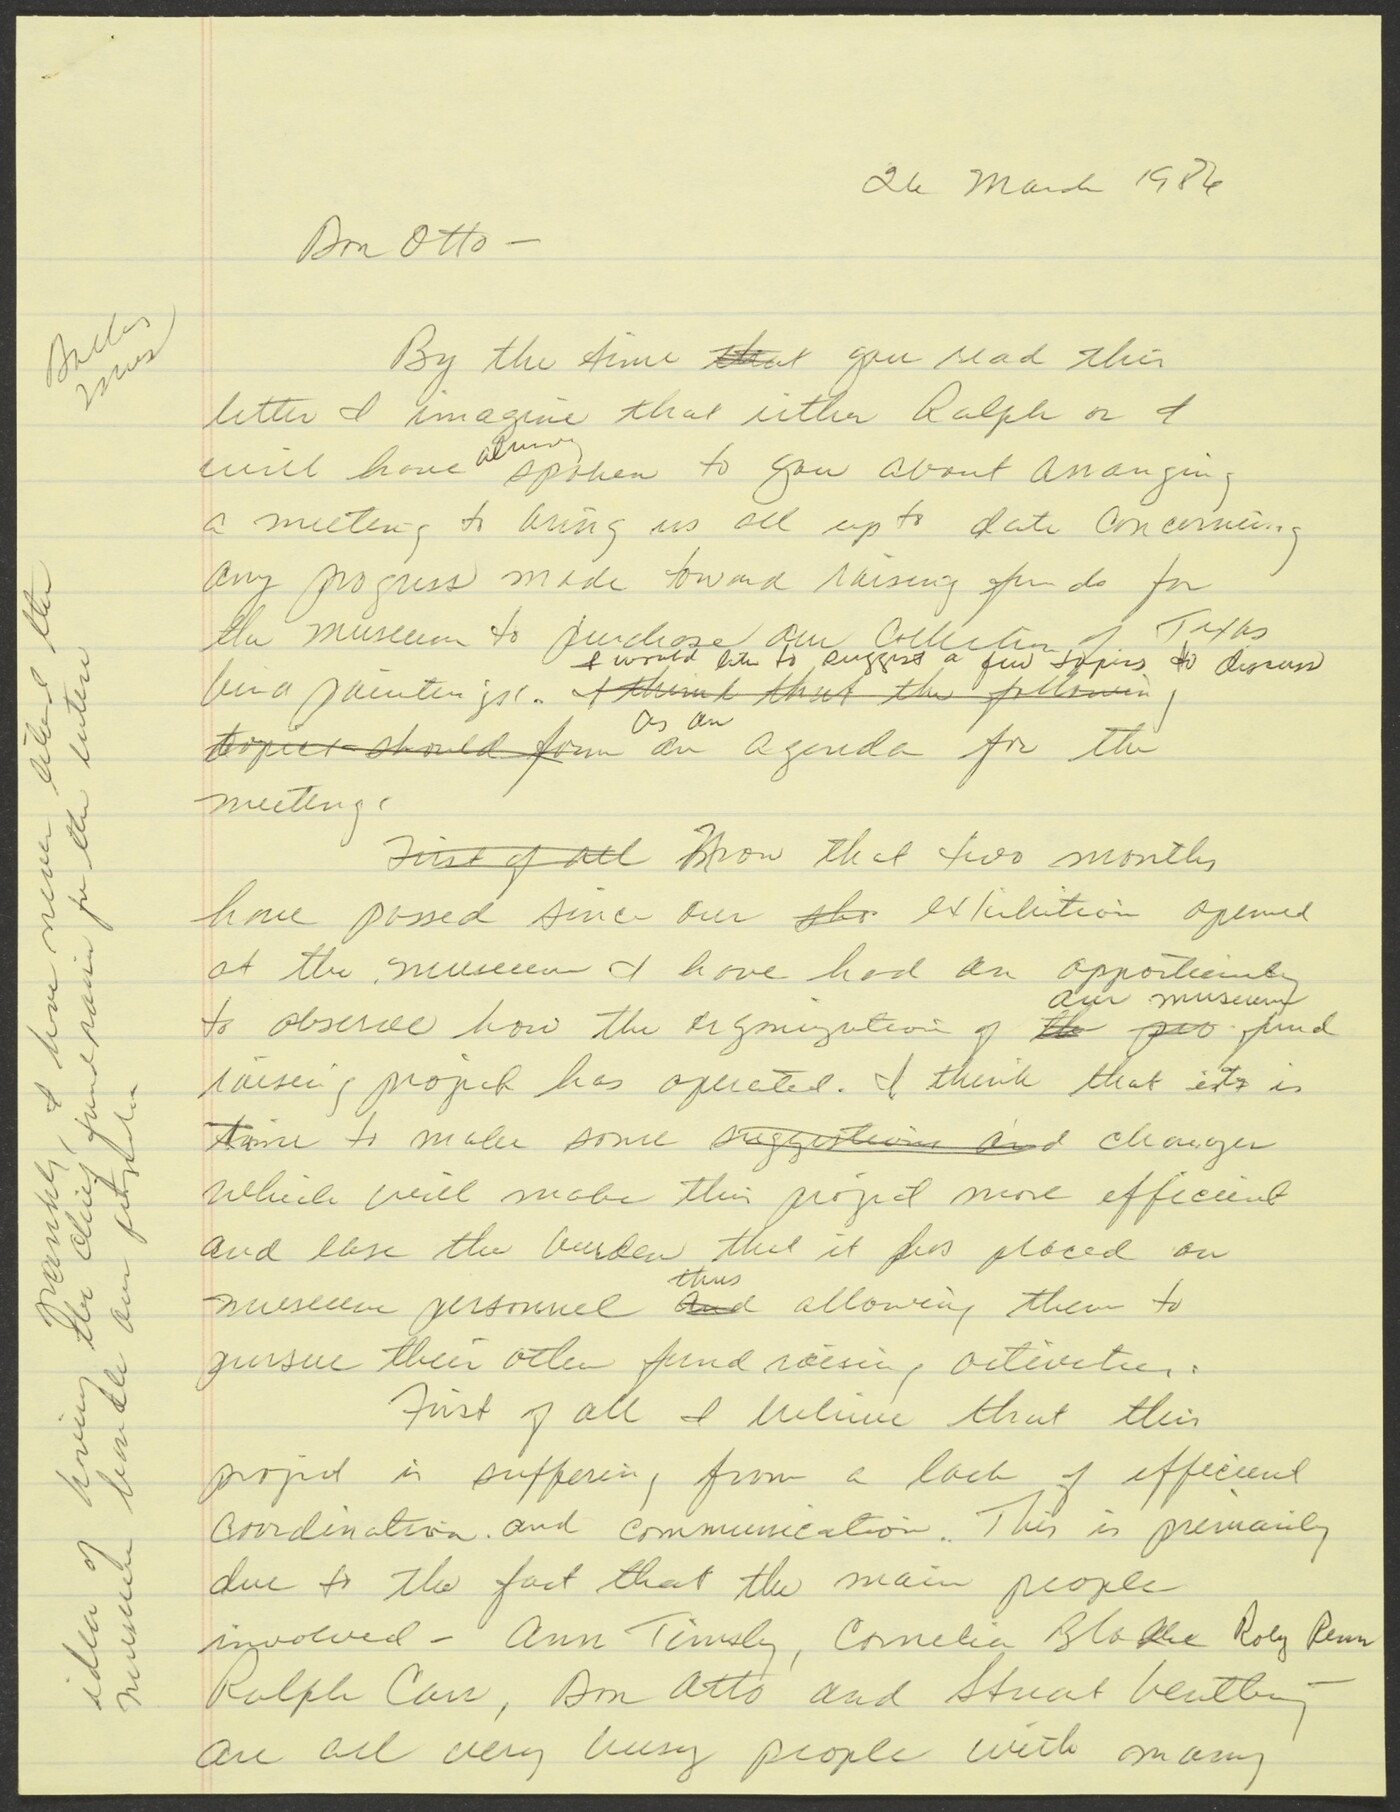 26 March 1986
Don Otto -
By the time that you read this
letter I imagine that either Ralph or I
will have already spoken to you about arranging
a meeting to bring us all up to date concerning
any progress made toward raising funds for
the museum to purchase our collection of Texas
I would like to suggest a few topics to discuss
bird paintings. I think that the following
as an
topics should form an agenda for the
meeting.
First of all Now that two months
have passed since our sho exhibition opened
at the museum I have had an opportunity
our museum
to observe how the organization of the pro fund
raising project has operated. I think that it is
time to make some suggestions and changes
which will make this project more efficient
and ease the burden that it has placed on
thus
museum personnel and allowing them to
pursue their other fund raising activities.
First of all I believe that this
project is suffering from a lack of efficient
coordination and communication. This is primarily
due to the fact that the main people
involved - Ann Tinsley, Cornelia Blake Roby Penn
Ralph Carr, Don Otto and Stuart Gentling
are all very busy people with many
Frankly, I have never liked the
idea of having the chief fund raiser for the entire
museum handle our